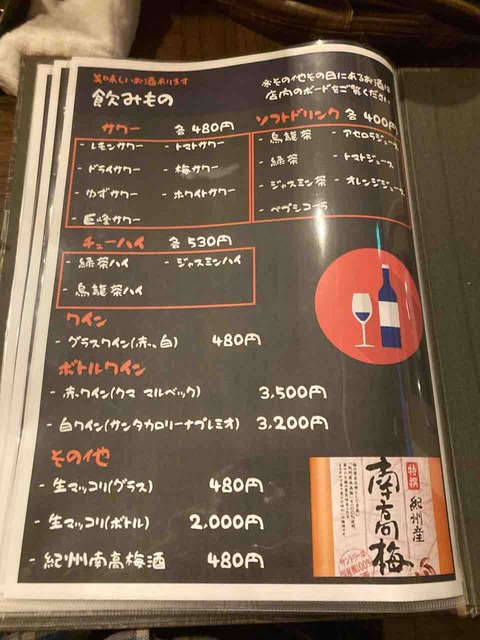 美味しいお酒あります
飲みもの
※その他その日にあるお酒は
店内のボードをご覧ください
サワー 各480円
・レモンサワー ・トマトサワー
・ドライサワー ・梅サワー
・ゆずサワー ・ホワイトサワー
・巨峰サワー
ソフトドリンク 各400円
・烏龍茶 ・アセロラジュース
・緑茶 ・トマトジュース
・ジャスミン茶 ・オレンジジュース
・ペプシコーラ
チューハイ 各530円
・緑茶ハイ ・ジャスミンハイ
・烏龍茶ハイ
ワイン
・グラスワイン(赤、白) 480円
ボトルワイン
・赤ワイン(クマ マルベック) 3,500円
・白ワイン(サンタカロリーナプレミオ) 3,200円
その他
・生マッコリ(グラス) 480円
・生マッコリ(ボトル) 2,000円
・紀州南高梅酒 480円
特撰
紀州産
南高梅